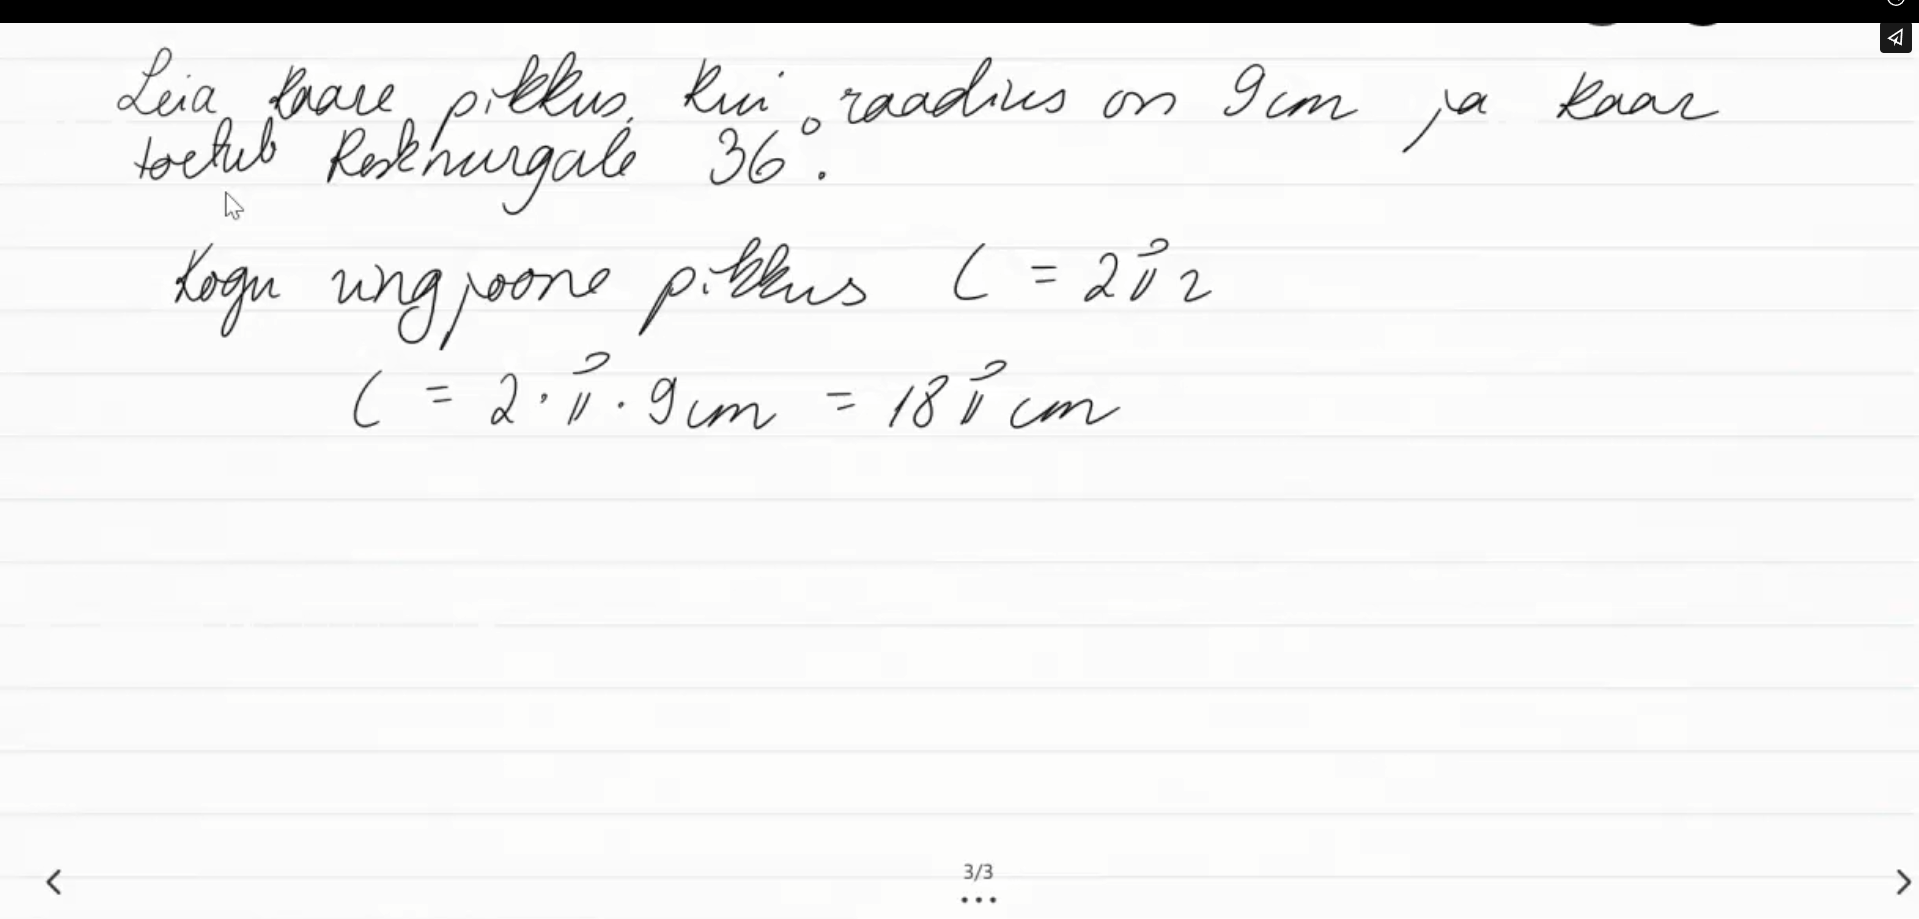 Leia kaare pikkus, kui raadius on 9cm ja kaar
toetub kesknurgale 36°.
Kogu ringjoone pikkus C = 2πr
C = 2·π·9cm = 18π cm
3/3